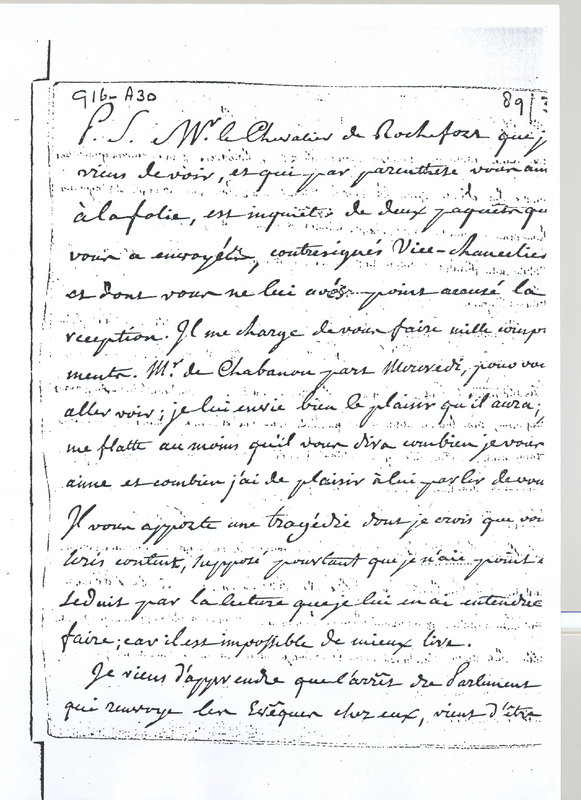 G16-A30
89
P. S. Mr. le Chevalier de Rochefort que j
viens de voir, et qui par parenthese vous aim
à la folie, est inquiet de deux paquets qu
vous a envoyés, contresignés Vice-chancelier
et dont vous ne lui avés point accusé la
reception. Il me charge de vous faire mille compr
ments. Mr. de Chabanon part Mercredi, pour vou
aller voir; je lui envie bien le plaisir qu'il aura;
me flatte au moins qu'il vous dira combien je vous
aime et combien j'ai de plaisir à lui parler de vou
Il vous apporte une tragédie dont je crois que vou
serés content, supposé pourtant que je n'aie point
seduit par la lecture que je lui en ai entendue
faire; car il est impossible de mieux lire.
Je viens d'apprendre que l'arrêt du Parlement
qui renvoye les Evêques chez eux, vient d'être